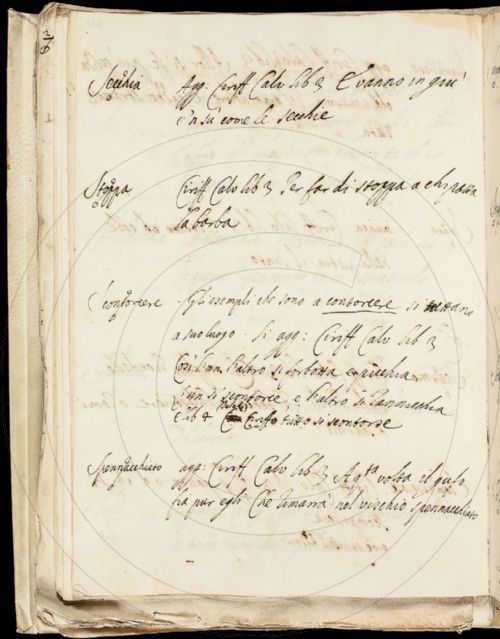 376
Secchia Agg: Ciriff Calv lib 3 E vanno in giu'
e 'n sù come le secchie
Stoppa Ciriff Calv lib 3 Per far di stoppa a chi
la barba
Scontorcere Gli esempli che sono a contorcere si mettano
a suo luogo. Si agg: Ciriff Calv lib 3
Così l'un l'altro si forbotta e
l'un si scontorce e l'altro si rannicchia
E lib 4 Ciriffo tutto si scontorse
Spennacchiato agg: Ciriff Calv lib 3 A qta volta il gufo
fia pur egli Che rimarrà nel vischio spennacchiato